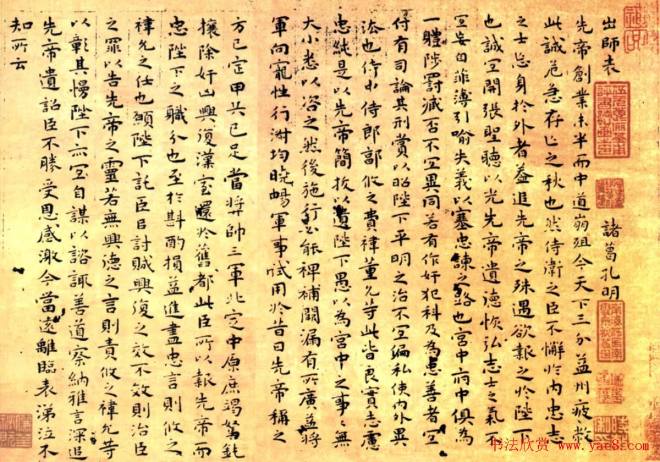 出師表
諸葛孔明
先帝創業未半而中道崩殂今天下三分益州疲敝
此誠危急存亡之秋也然侍衛之臣不懈於內忠志
之士忘身於外者盖追先帝之殊遇欲報之於陛下
也誠宜開張聖聽以光先帝遺德恢弘志士之氣不
宜妄自菲薄引喻失義以塞忠諫之路也宮中府中俱為
一體陟罰臧否不宜異同若有作奸犯科及為忠善者宜
付有司論其刑賞以昭陛下平明之治不宜偏私使內外異
法也侍中侍郎郭攸之費禕董允等此皆良實志慮
忠純是以先帝簡拔以遺陛下愚以為宮中之事事無
大小悉以咨之然後施行必能裨補闕漏有所廣益將
軍向寵性行淑均曉暢軍事試用於昔日先帝稱之
方已定甲兵已足當獎帥三軍北定中原庶竭駑鈍
攘除奸凶興復漢室還於舊都此臣所以報先帝而
忠陛下之職分也至於斟酌損益進盡忠言則攸之
禕允之任也願陛下託臣以討賊興復之效不效則治臣
之罪以告先帝之靈若無興德之言則責攸之禕允等
以彰其慢陛下亦宜自謀以諮諏善道察納雅言深追
先帝遺詔臣不勝受恩感激今當遠離臨表涕泣不
知所云
书法欣赏
www.yac8.com